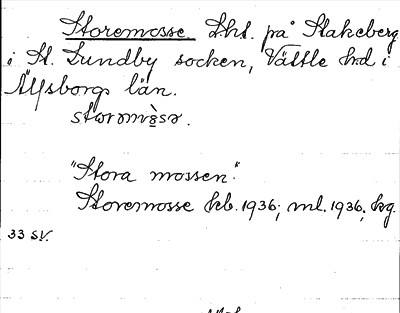 Storemosse Lht. på Stakeberg
i St. Lundby socken, Vättle hd i
Älvsborgs län.
"Stora mossen".
Storemosse kb. 1936; ml. 1936, hg.
33 SV.